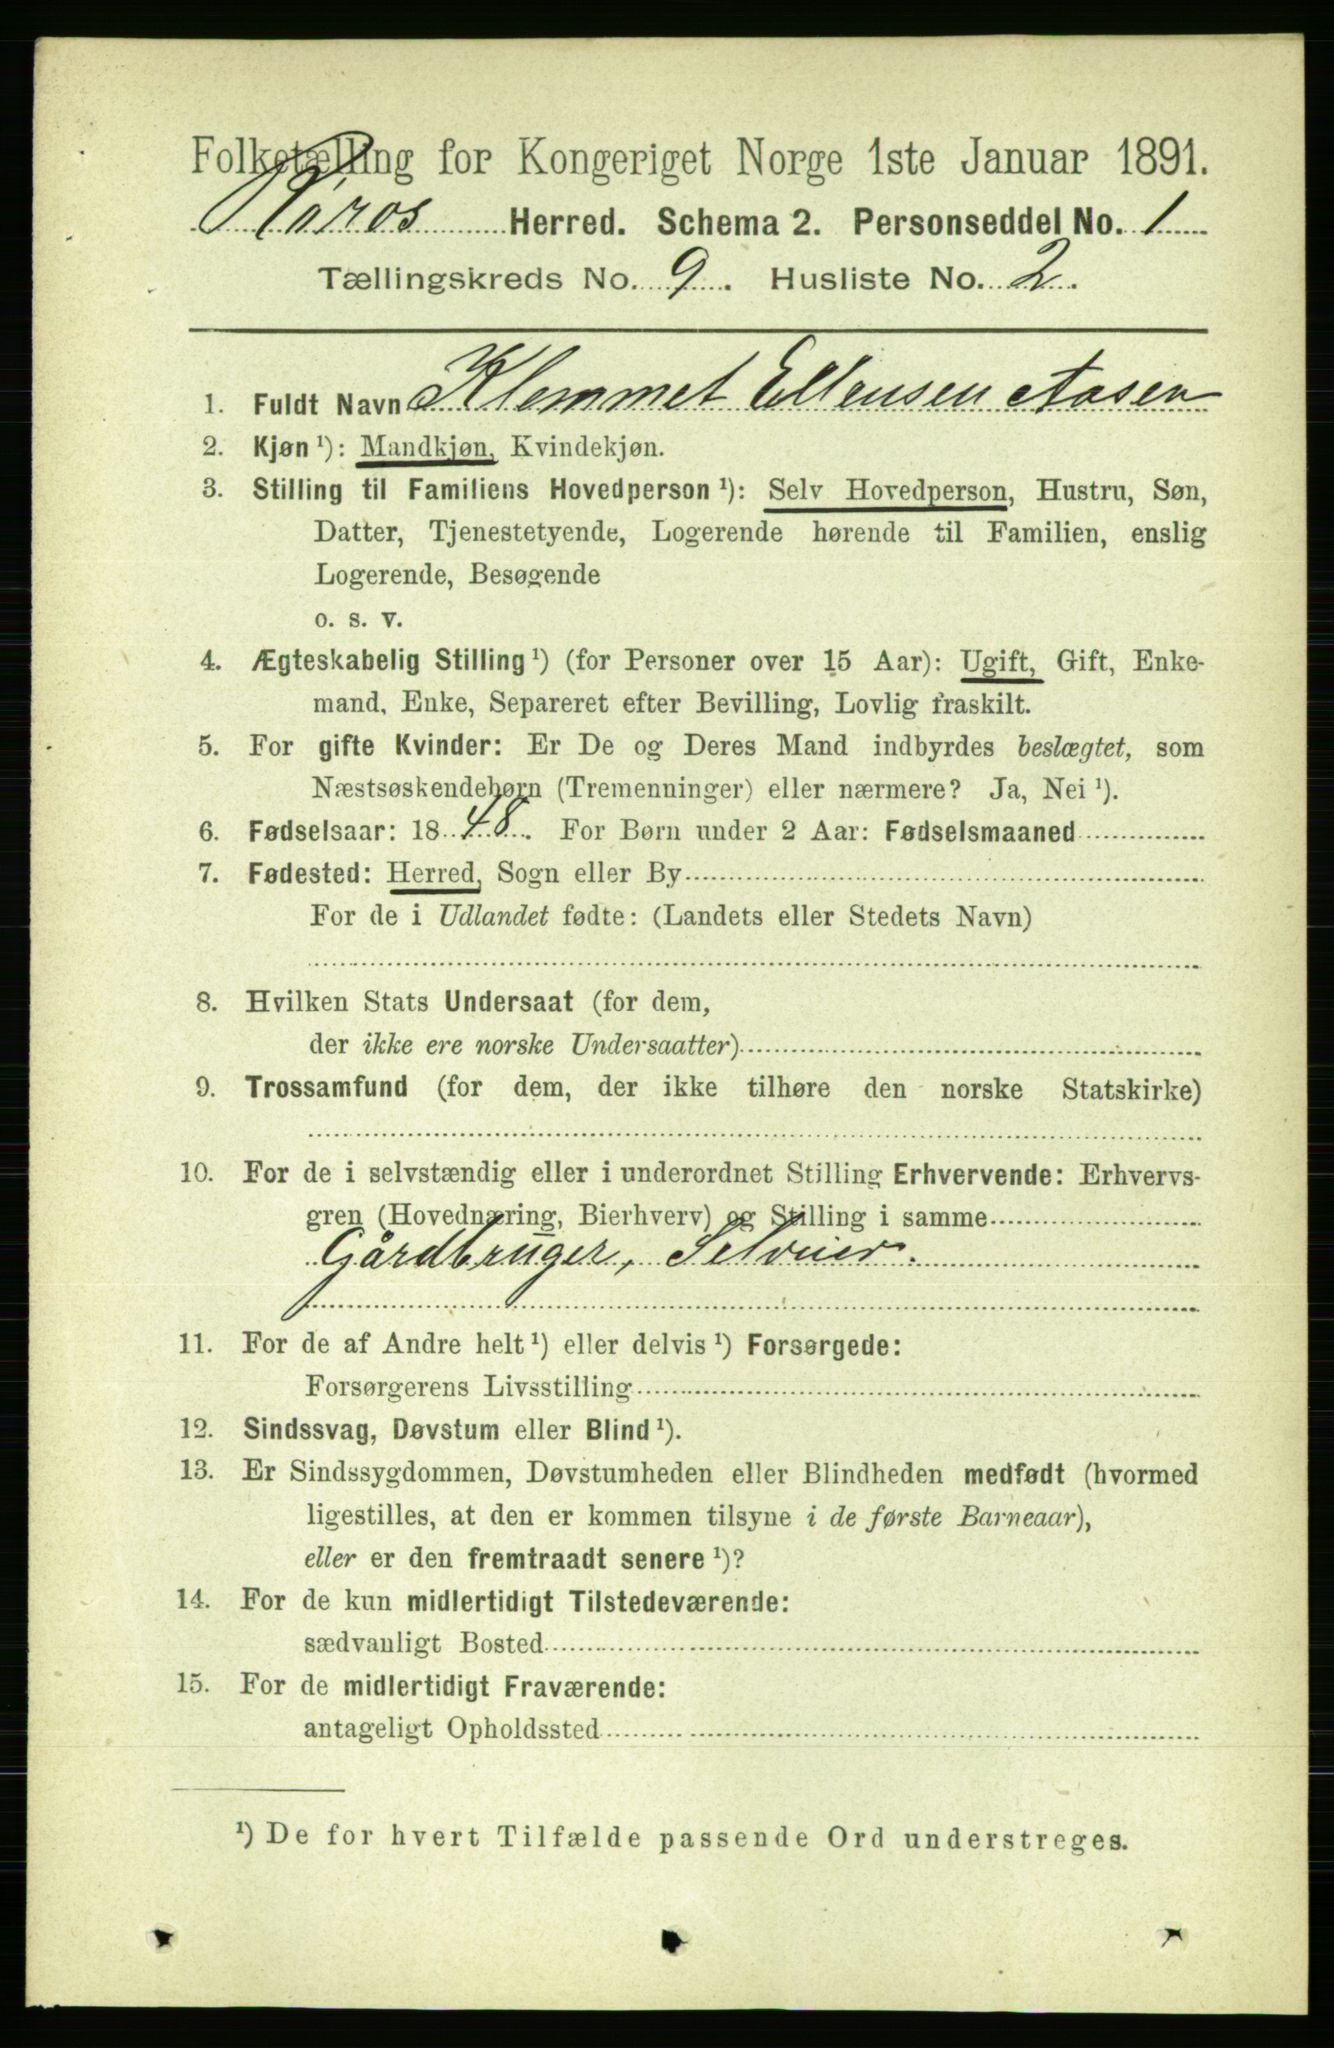 Folketælling for Kongeriget Norge 1ste Januar 1891.
Røros Herred. Schema 2. Personseddel No. 1
Tællingskreds No. 9. Husliste No. 2.
1. Fuldt Navn Klemmet Ellensen Aasen
2. Kjøn ¹): Mandkjøn, Kvindekjøn.
3. Stilling til Familiens Hovedperson ¹): Selv Hovedperson, Hustru, Søn,
Datter, Tjenestetyende, Logerende hørende til Familien, enslig
Logerende, Besøgende
o. s. v.
4. Ægteskabelig Stilling ¹) (for Personer over 15 Aar): Ugift, Gift, Enke-
mand, Enke, Separeret efter Bevilling, Lovlig fraskilt.
5. For gifte Kvinder: Er De og Deres Mand indbyrdes beslægtet, som
Næstsøskendebørn (Tremenninger) eller nærmere? Ja, Nei ¹).
6. Fødselsaar: 1848. For Børn under 2 Aar: Fødselsmaaned
7. Fødested: Herred, Sogn eller By
For de i Udlandet fødte: (Landets eller Stedets Navn)
8. Hvilken Stats Undersaat (for dem,
der ikke ere norske Undersaatter)
9. Trossamfund (for dem, der ikke tilhøre den norske Statskirke)
10. For de i selvstændig eller i underordnet Stilling Erhvervende: Erhvervs-
gren (Hovednæring, Bierhverv) og Stilling i samme
Gårdbruger, Selveier.
11. For de af Andre helt ¹) eller delvis ¹) Forsørgede:
Forsørgerens Livsstilling
12. Sindssvag, Døvstum eller Blind ¹).
13. Er Sindssygdommen, Døvstumheden eller Blindheden medfødt (hvormed
ligestilles, at den er kommen tilsyne i de første Barneaar),
eller er den fremtraadt senere ¹)?
14. For de kun midlertidigt Tilstedeværende:
sædvanligt Bosted
15. For de midlertidigt Fraværende:
antageligt Opholdssted
¹) De for hvert Tilfælde passende Ord understreges.